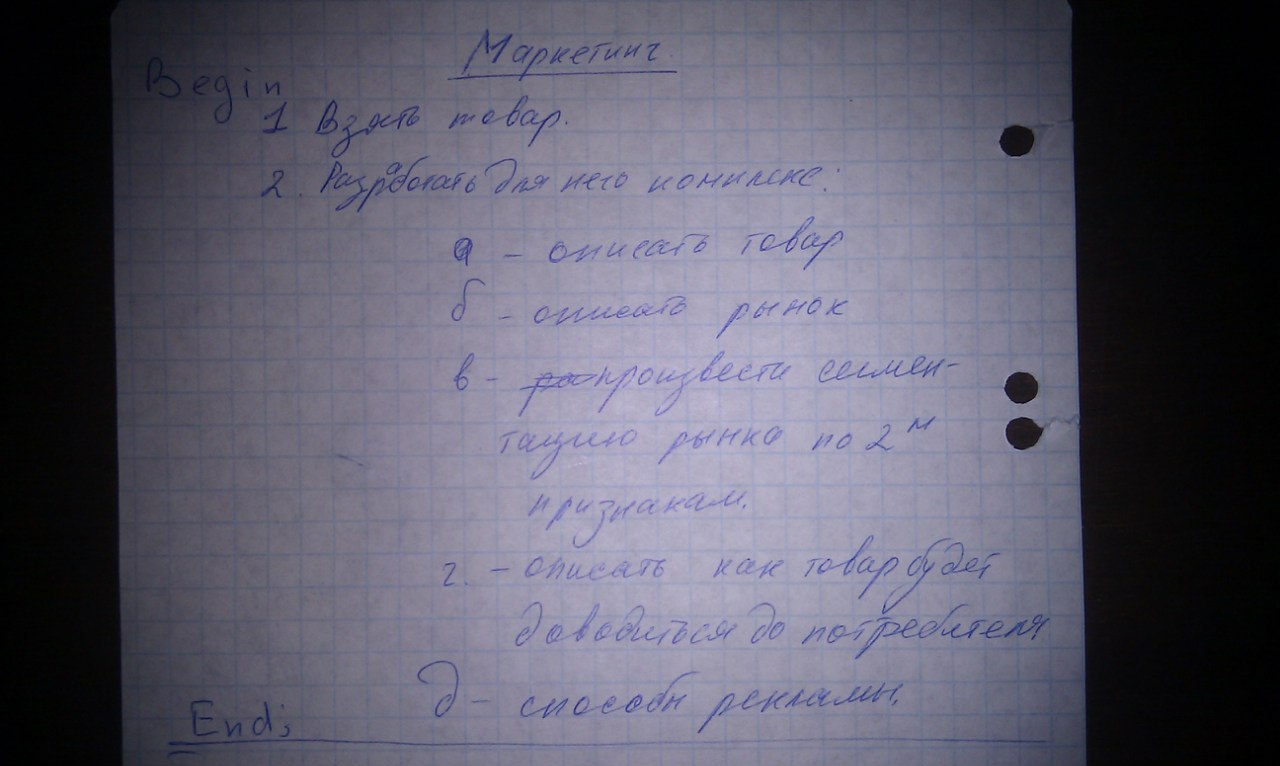 Маркетинг.
Begin
1 Взять товар.
2. Разработать для него комплекс:
а - описать товар
б - описать рынок
в - произвести сегмен-
тацию рынка по 2м
признакам.
г. - описать как товар будет
доводиться до потребителя
д - способы рекламы.
End;